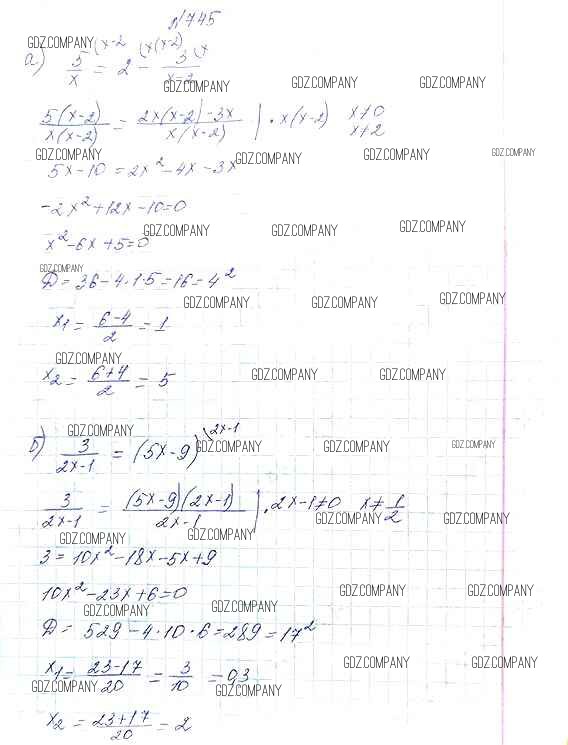 №745
а) 5/x (x-2 = 2 (x(x-2) - 3/(x-2) (x
5(x-2)/x(x-2) = 2x(x-2)-3x/x(x-2) | · x(x-2) x≠0 x≠2
5x-10=2x²-4x-3x
-2x²+12x-10=0
x²-6x+5=0
Д=36-4·1·5=16=4²
x₁=(6-4)/2=1
x₂=(6+4)/2=5
б) 3/(2x-1) = (5x-9) (2x-1
3/(2x-1) = (5x-9)(2x-1)/(2x-1) | · 2x-1≠0 x≠1/2
3=10x²-18x-5x+9
10x²-23x+6=0
Д=529-4·10·6=289=17²
x₁=(23-17)/20=3/10=0,3
x₂=(23+17)/20=2
GDZ.COMPANY